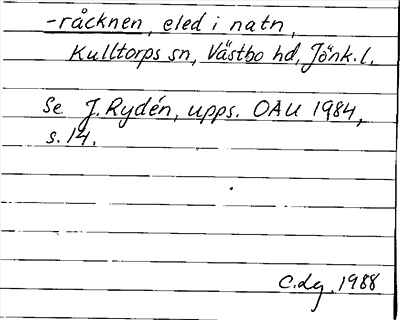 -råcknen, eled i natn,
Kulltorps sn, Västbo hd, Jönk.l.
Se J. Rydén, upps. OAU 1984,
s. 14.
C.Lg. 1988